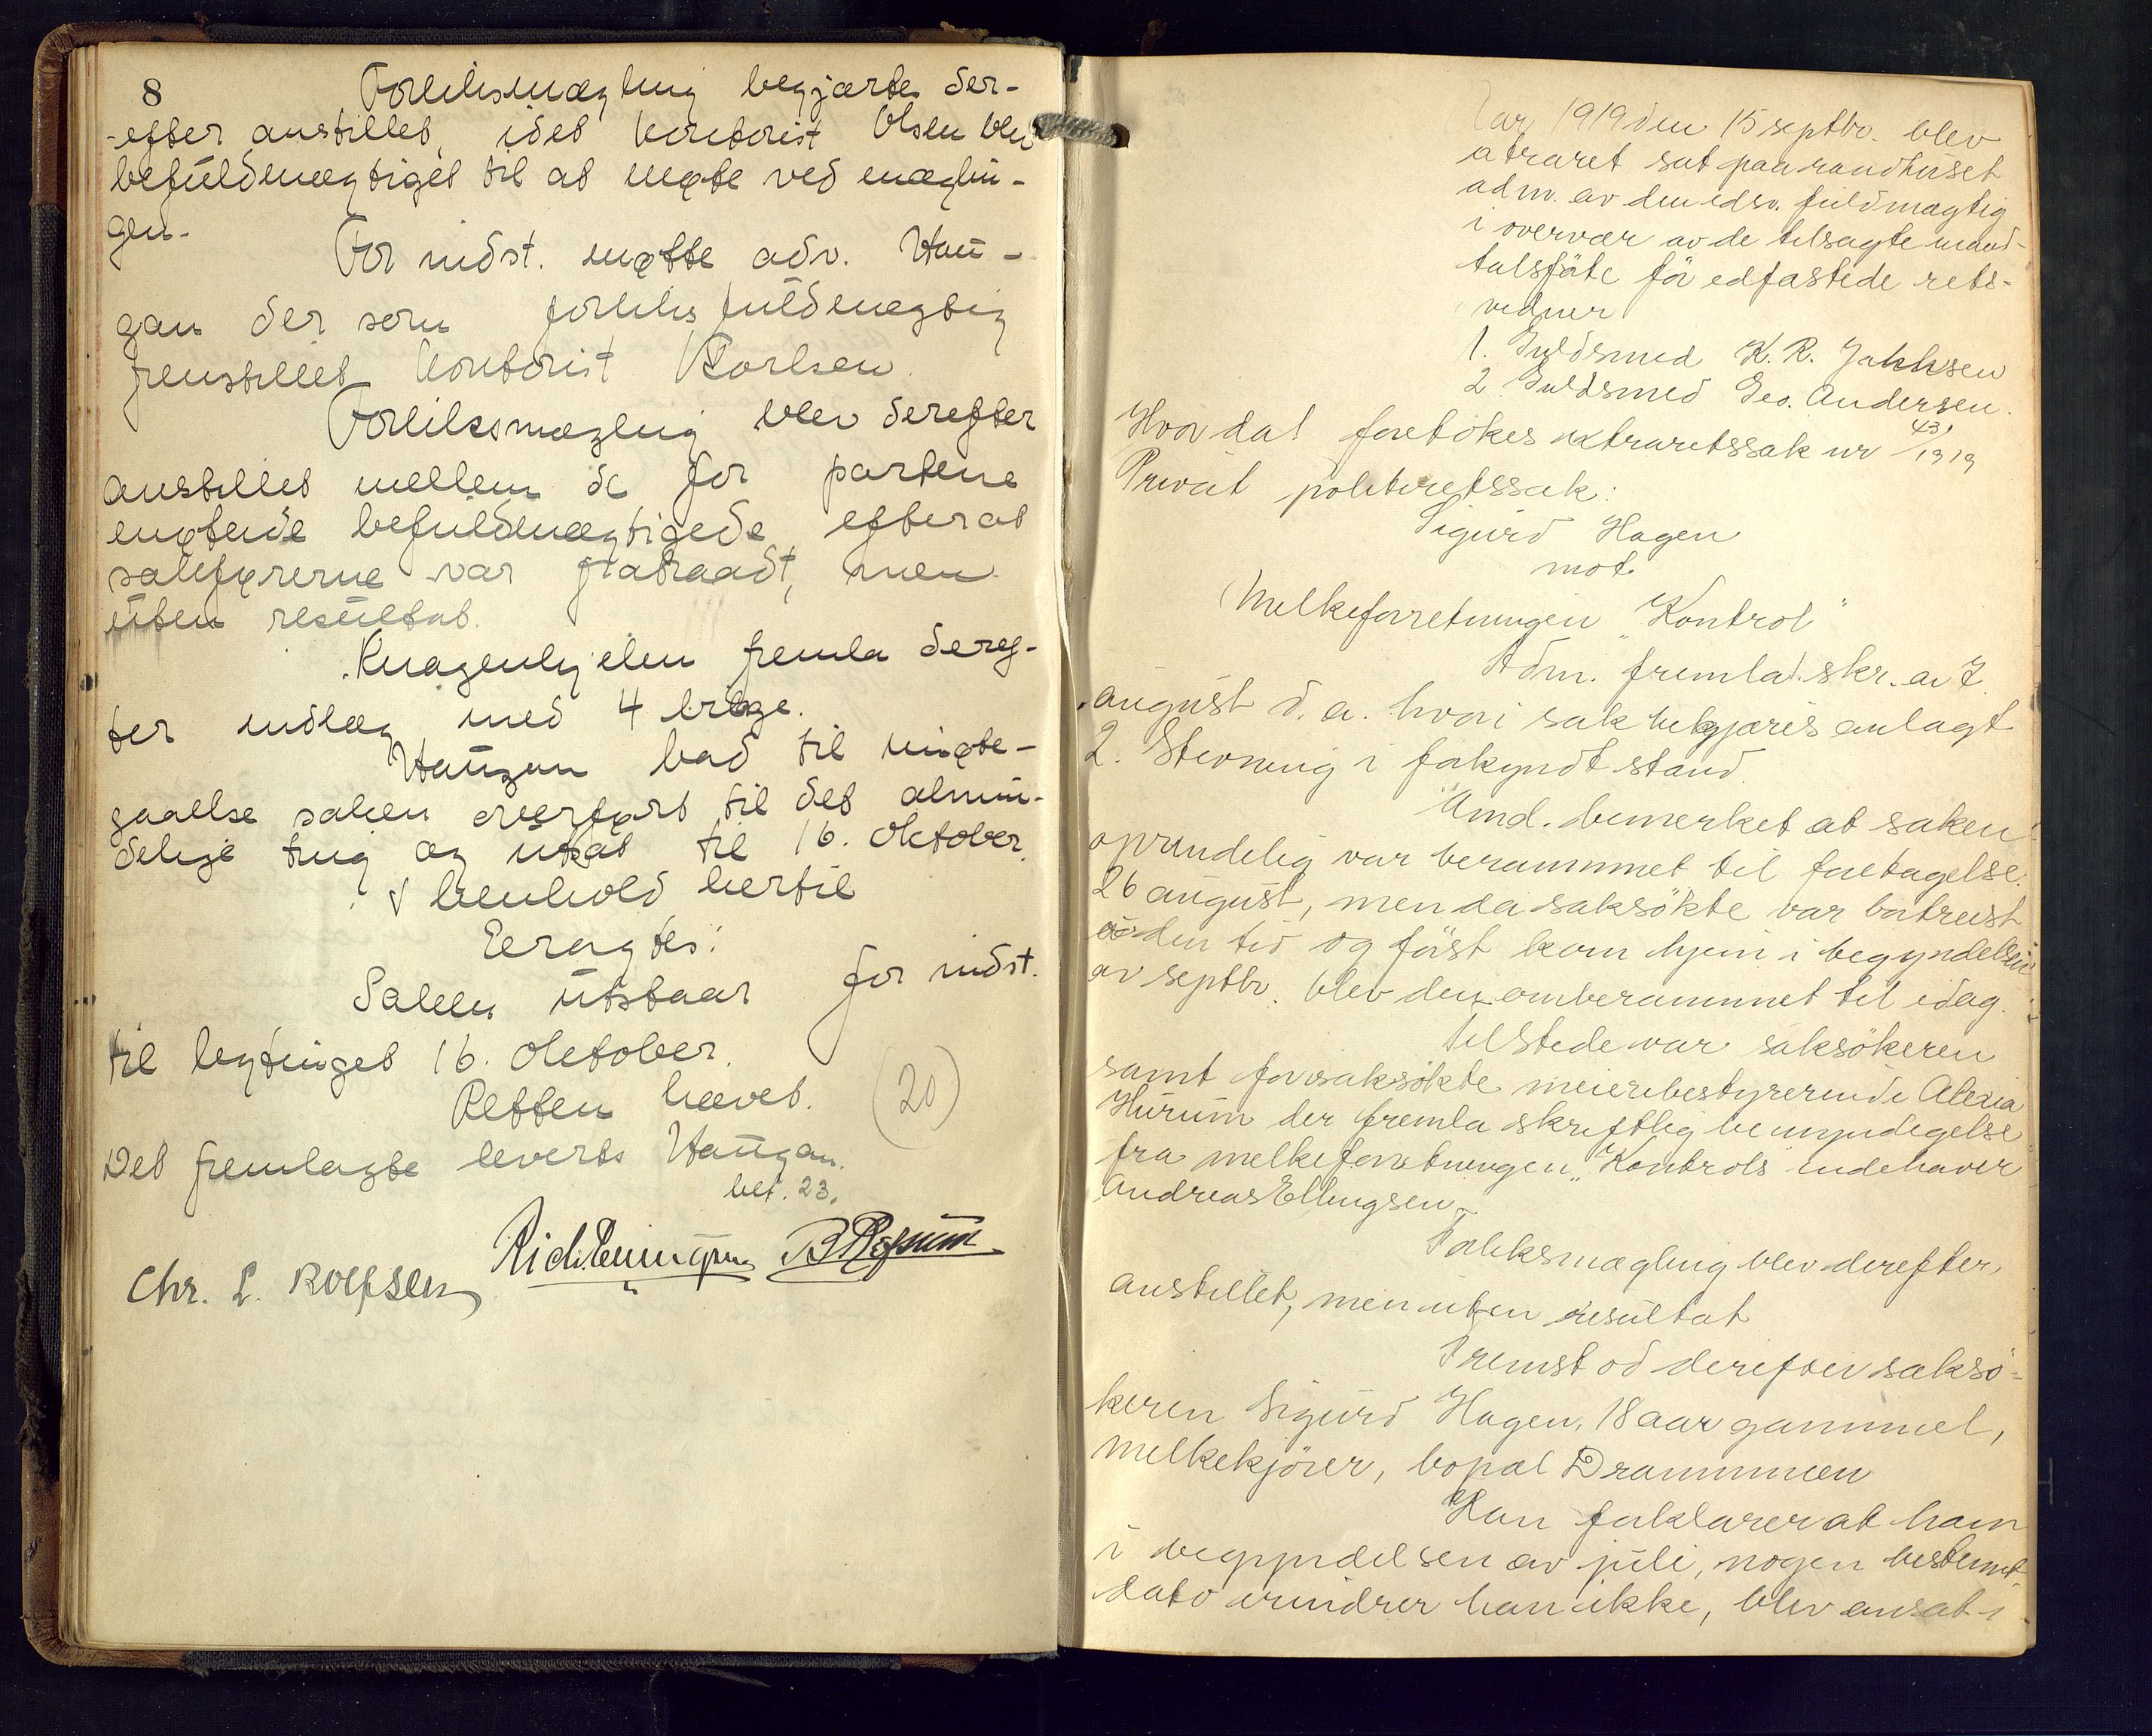 8
Forliksmægling begjærtes der-
-efter anstillet, idet kontorist Olsen blev
befuldmægtiget til at møte ved mæglin-
gen.
For indst. møtte adv. Hau-
gan der som forliksfuldmægtig
fremstillet kontorist Karlsen.
Forliksmægling blev derefter
anstillet mellem de for partene
møtende befuldmægtigede efterat
sakførerne var fratraadt, men
uten resultat.
Knagenhjelm fremla deref-
ter indlæg med 4 bilage.
Haugan bad til imøte-
gaaelse saken overført til det almin-
delige ting og utsat til 16. oktober.
I henhold hertil
Eragtes:
Saken utstaar for indst.
til bytinget 16. oktober.
Retten hævet.
(20)
Det fremlagte levertes Haugan.
bet. 23.
Chr. L. Rolfsen
Aar 1919 den 15 septbr. blev
xtraret sat paa raadhuset
adm. av den edsv. fuldmægtig
i overvær av de tilsagte mand-
talsførte før edfæstede rets-
vidner
1. Guldsmed K. R. Jakhsen
2 Guldsmed Geo. Andersen.
Hvor da! foretokes xtraretssak nr 43/1919
Privat politiretssak:
Sigurd Hagen
mot
Melkeforretningen "Kontrol"
Adm. fremla 1. skr. av 7.
august d. a. hvori sak bekjgæres anlagt
2. Stevning i forkyndt stand.
Amd. bemerket at saken
oprindelig var berammet til foretagelse
26 august, men da saksökte var bortreist
den tid og först kom hjem i begyndelsen
av septbr. blev den omberammet til idag.
Tilstede var saksökeren
samt for saksökte meieribestyrerinde Alexia
Hurum der fremla skriftlig bemyndigelse
fra melkeforretningen "Kontrols" indehaver
Andreas Ellingsen.
Forliksmægling blev derefter
anstillet, men uten resultat
Fremstod derefter saksö-
keren Sigurd Hagen, 18 aar gammel,
melkekjörer, bopæl Drammmen
Han forklarer at han
i begyndelsen av juli, nogen bestemt
dato erindrer han ikke, blev ansat i